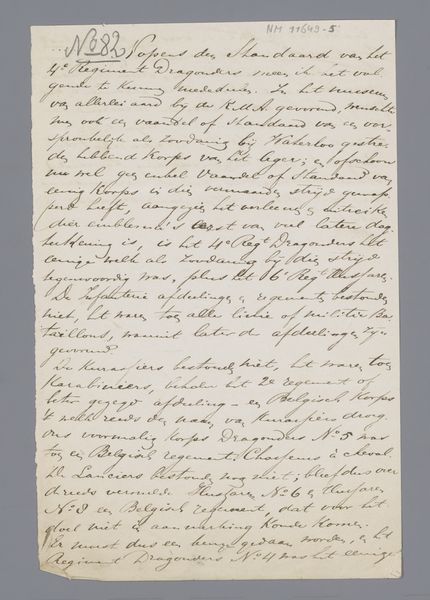 NM 11649-5
No 82
Nopens den Standaard van het
4e Regiment Dragonders meen ik het vol
gende te kunnen mededeelen. In het museum
van allerlei aard by de K.M.A. gevormd, wenschte
men ook een vaandel of Standaard van een oor
spronkelijk als zoodanig bij Waterloo gestre
den hebbend Korps van het leger; en ofschoon
nu wel geen enkel Vaandel of Standaard van
eenig Korps in die vermaarden strijd gewap
perd heeft, aangezien het verleenen en uitreiken
dier emblema's eerst van veel latere dag
teekening is, is het 4e Regt Dragonders het
eenige welk als zoodanig by die strijd
tegenwoordig was, plus het 6e Regt Huzaren.
De Infanterie afdeelingen en regementen bestonden
niet, het waren toen alle linie of militie Ba
taillons, waaruit later de afdeelingen zijn
gevormd.
De Kurassiers bestonden niet, het waren toen
Karabiniers, behalve het 2e regement of
beter gezegd afdeeling een Belgisch Korps
't welk reeds den naam van Kurassiers droeg.
Ons voormalig Korps Dragonders No 5 was
toen een Belgisch regement Chasseurs à cheval.
De Lanciers bestonden nog niet; bleef dus over
de reeds vermelde Huzaren No 6 en Huzaren
No 8 een Belgisch regement, dat voor het
doel niet in aanmerking konde komen.
Er moest dus een keuze gedaan worden, en het
Regiment Dragonders No 4 was het eenige